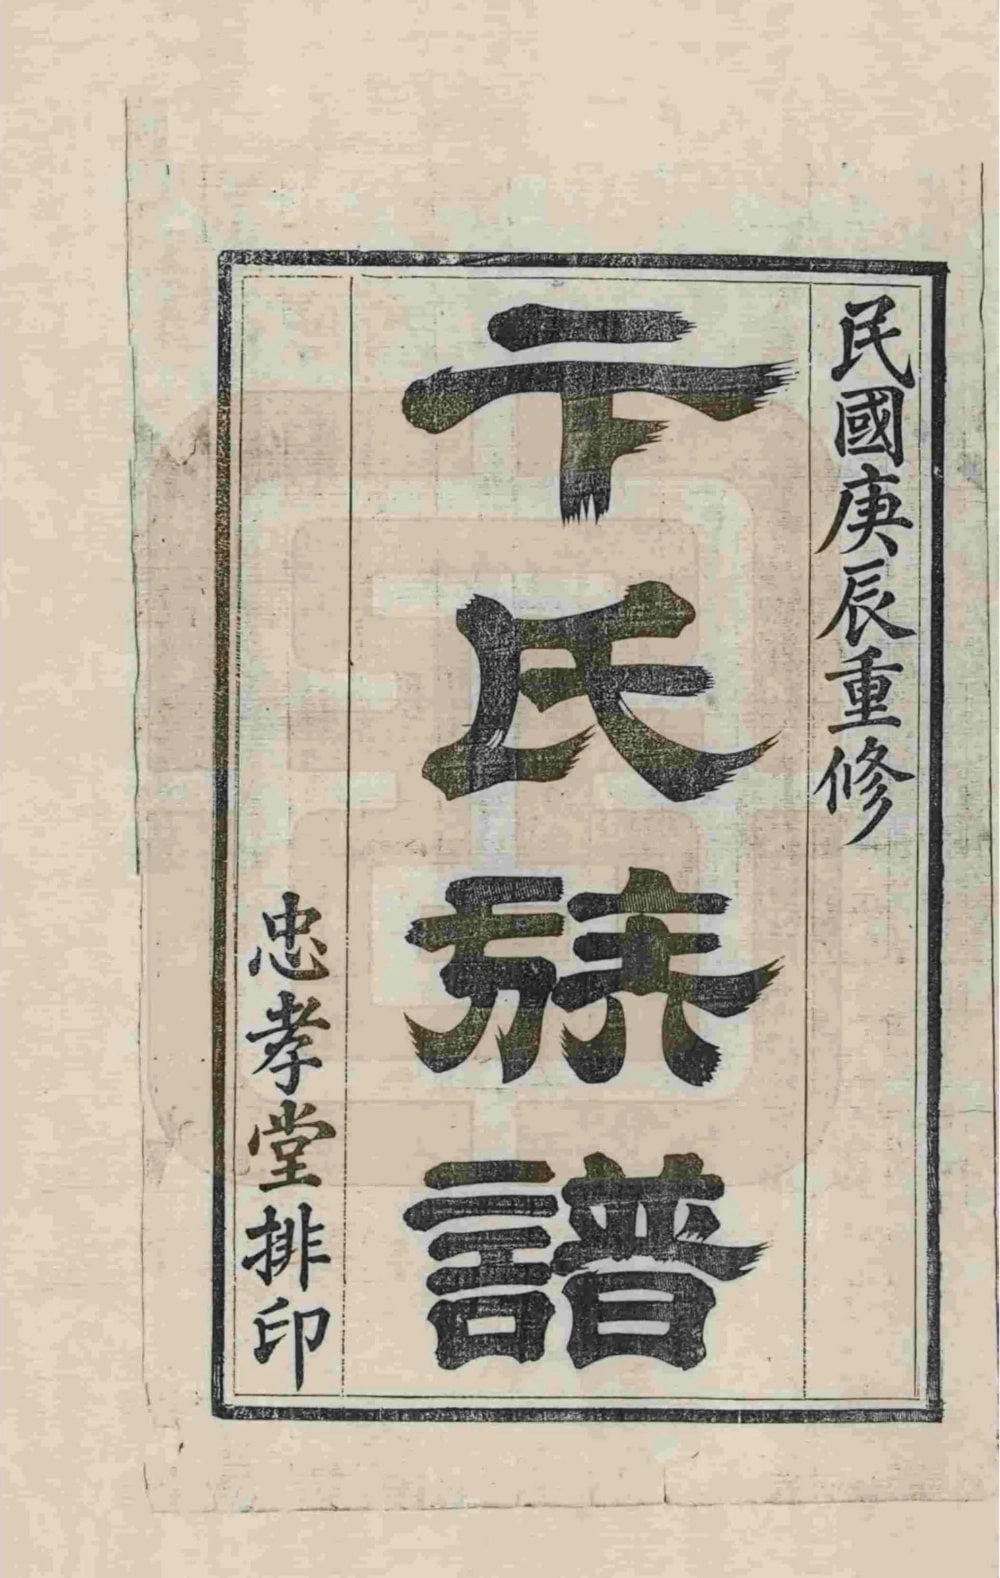 民國庚辰重修
卞氏族譜
忠孝堂排印